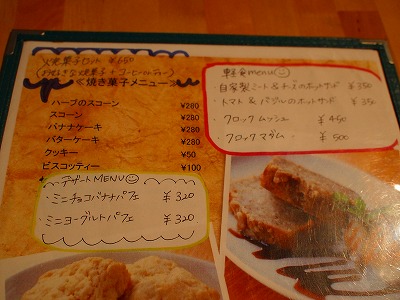 焼菓子セット ¥650
(お好きな焼菓子+コーヒーor ティー)
≪焼き菓子メニュー≫
ハーブのスコーン ¥280
スコーン ¥280
バナナケーキ ¥280
バターケーキ ¥280
クッキー ¥50
ビスコッティー ¥100
デザートMENU
・ミニチョコバナナパフェ ¥320
・ミニヨーグルトパフェ ¥320
軽食menu
・自家製ミート&チーズのホットサンド ¥350
・トマト&バジルのホットサンド ¥350
・クロックムッシュ ¥450
・クロックマダム ¥500